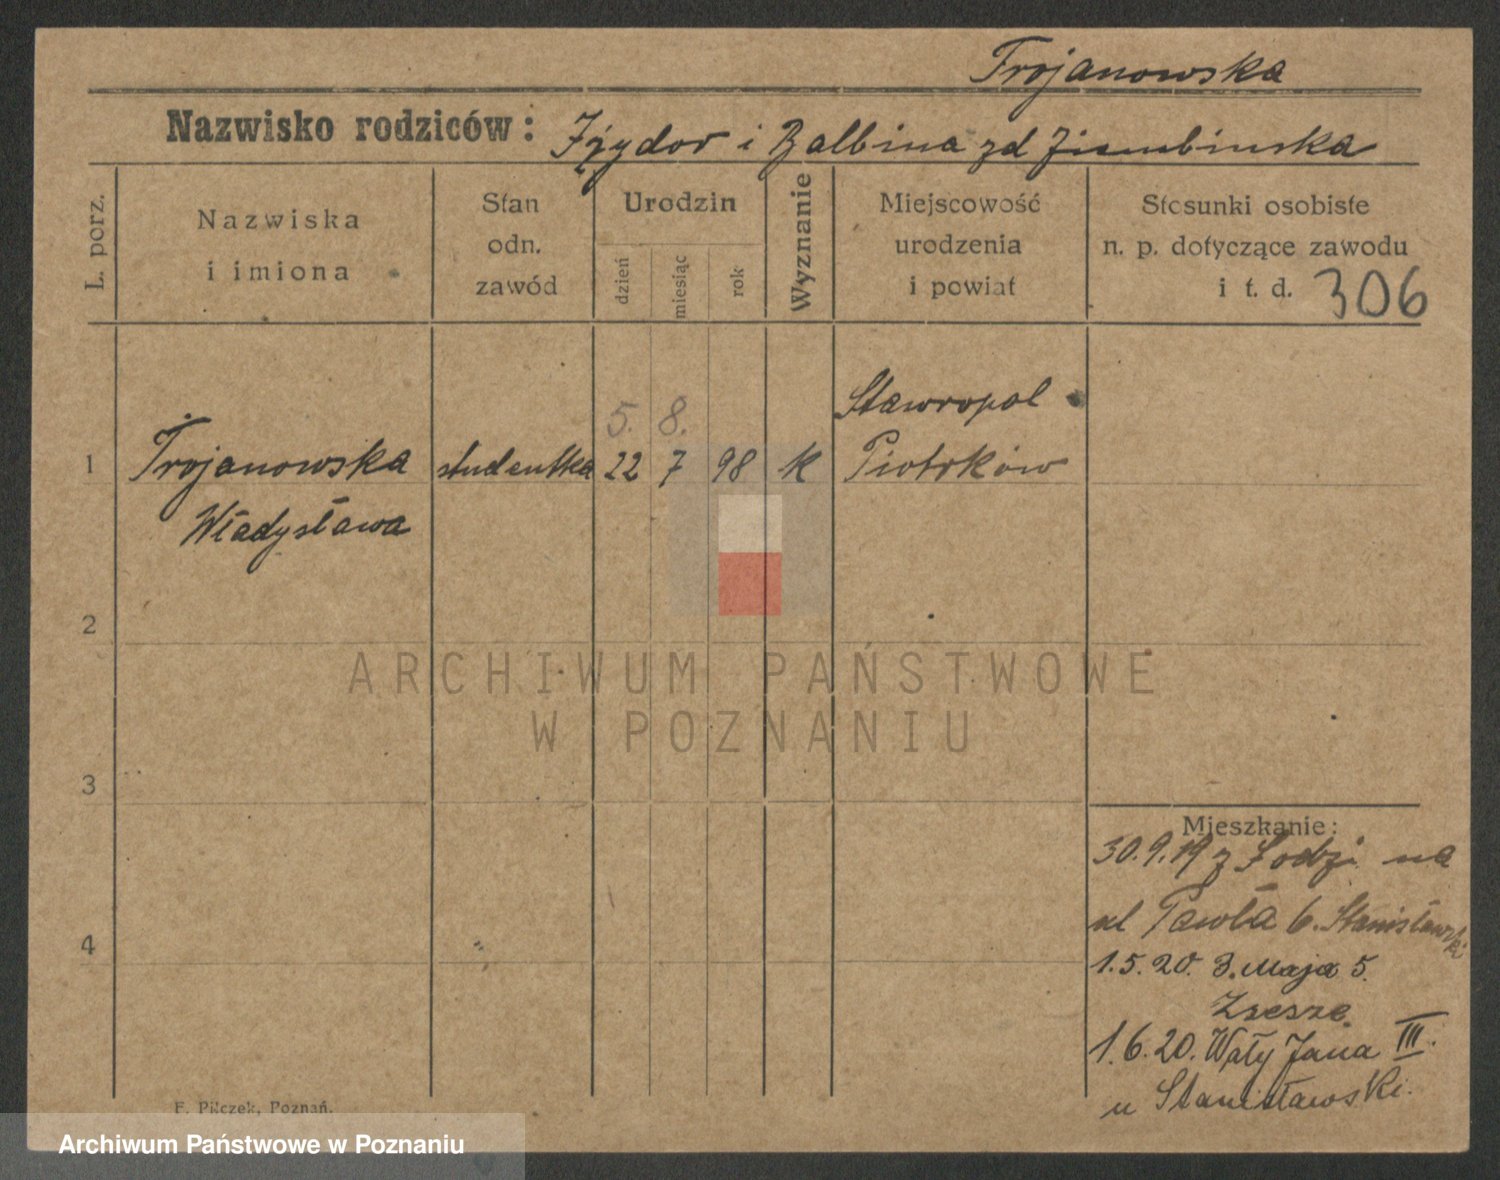 Trojanowska
Nazwisko rodziców: Izydor i Balbina zd Ziembinska
L. porz.
Nazwiska
i imiona
Stan
odn.
zawód
Urodzin
dzień
miesiąc
rok
Wyznanie
Miejscowość
urodzenia
i powiat
Stosunki osobiste
n. p. dotyczące zawodu
i t. d. 306
5. 8.
Stawropol
1 Trojanowska studentka 22 7 98 k Piotrków
Władysława
2
ARCHIWUM PAŃSTWOWE
W POZNANIU
3
Mieszkanie:
30.9.19 z Łodzi na
ul Pawła 6. Stanisławski
4
1.5.20. 3. Maja 5.
1.6.20. Wały Jana III.
u Stanisławski.
F. Pilczek, Poznań.
Archiwum Państwowe w Poznaniu